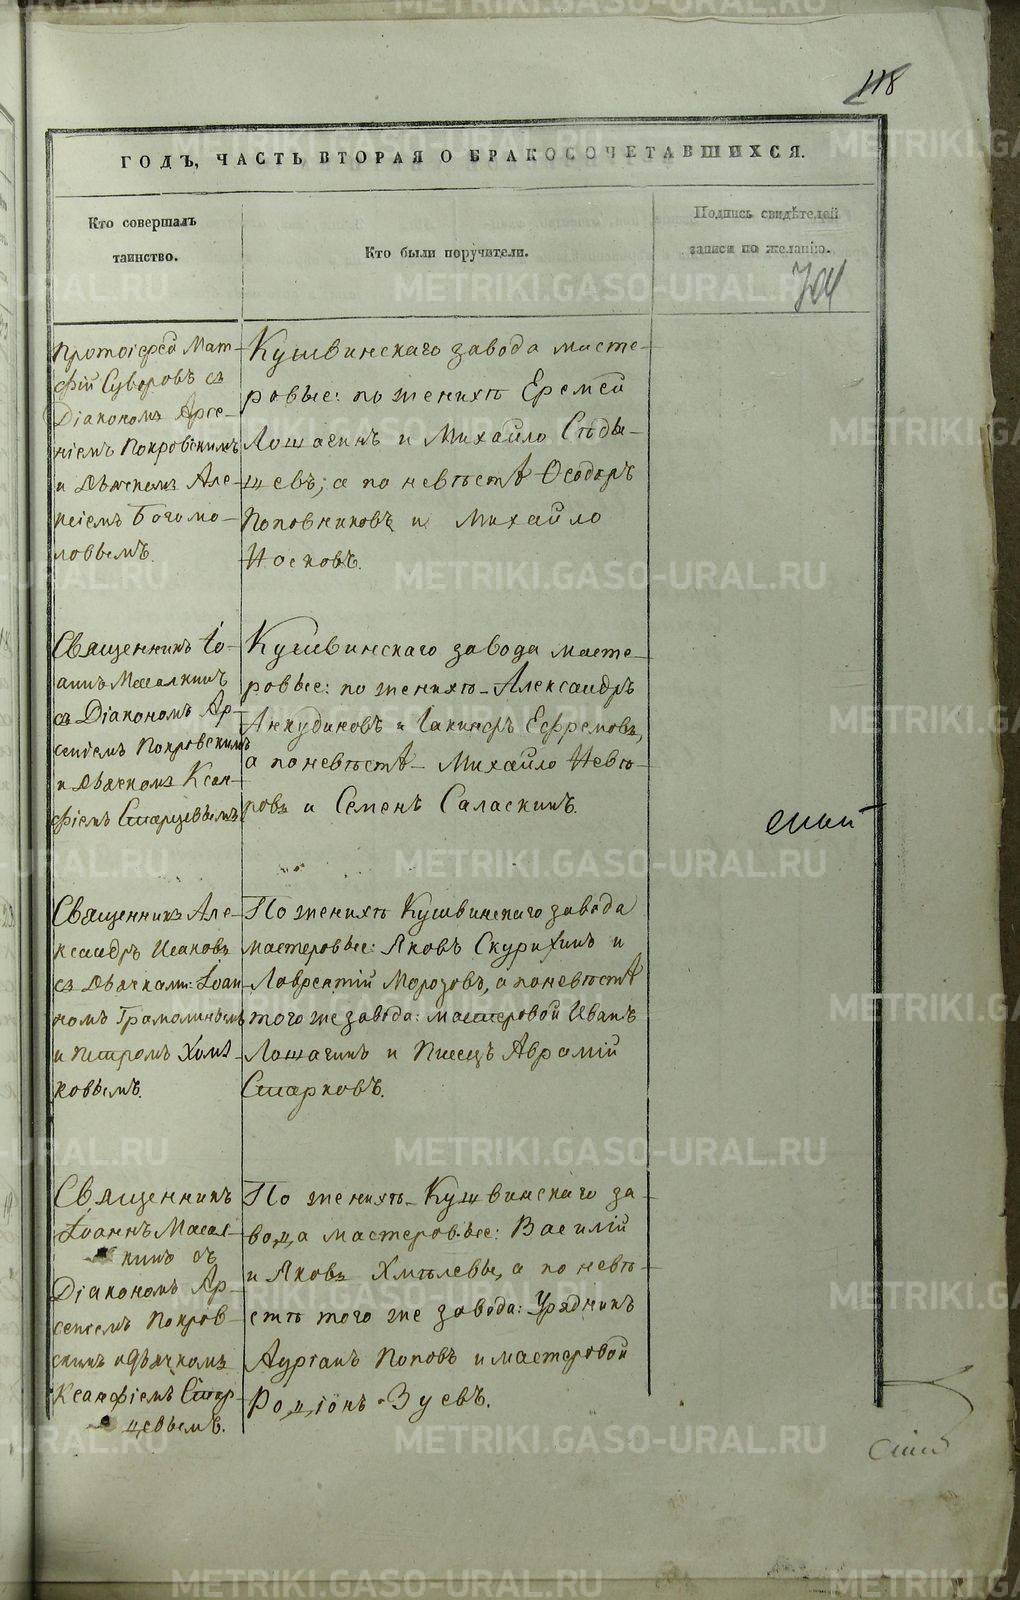 118
ГОДЪ, ЧАСТЬ ВТОРАЯ О БРАКОСОЧЕТАВШИХСЯ.
Кто совершалъ
таинство.
Кто были поручители.
Подпись свидѣтелей
записи по желанію.
Протоіерей Мат-
фій Суворовъ съ
Діакономъ Арсе-
ніемъ Покровскимъ
и Дьячкомъ Але-
ксіемъ Богомо-
ловымъ.
Кушвинскаго завода масте-
ровые: по женихѣ Еремѣй
Лошагинъ и Михайло Сѣды-
шевъ; а по невѣстѣ Ѳеодоръ
Поповниковъ и Михайло
Носковъ.
Священникъ Іо-
аннъ Масалкинъ
съ Діакономъ Ар-
сеніемъ Покровскимъ
и Дьячкомъ Ксан-
фіемъ Старцевымъ
Кушвинскаго завода масте-
ровые: по женихѣ Александръ
Анкудиновъ и Іакинфъ Ефремовъ,
а по невѣстѣ Михайло Невѣ-
ровъ и Семенъ Саласкинъ.
Священникъ Але-
ксандръ Исаковъ
съ Дьячками: Іоан-
номъ Грамолинымъ
и Петромъ Хомя-
ковымъ.
По женихѣ Кушвинскаго завода
мастеровые: Яковъ Скурихинъ и
Лаврентій Морозовъ, а по невѣстѣ
того же завода: мастеровой Иванъ
Лошагинъ и Писецъ Аврамій
Старковъ.
Священникъ
Іоаннъ Масал-
кинъ съ
Діакономъ Ар-
сеніемъ Покров-
скимъ и Дьячкомъ
Ксанфіемъ Стар-
цевымъ.
По женихѣ Кушвинскаго за-
вода мастеровые: Василій
и Яковъ Хмѣлевы, а по невѣ-
стѣ того же завода: Урядникъ
Поповъ и мастеровой
Родіонъ Зуевъ.
METRIKI.GASO-URAL.RU